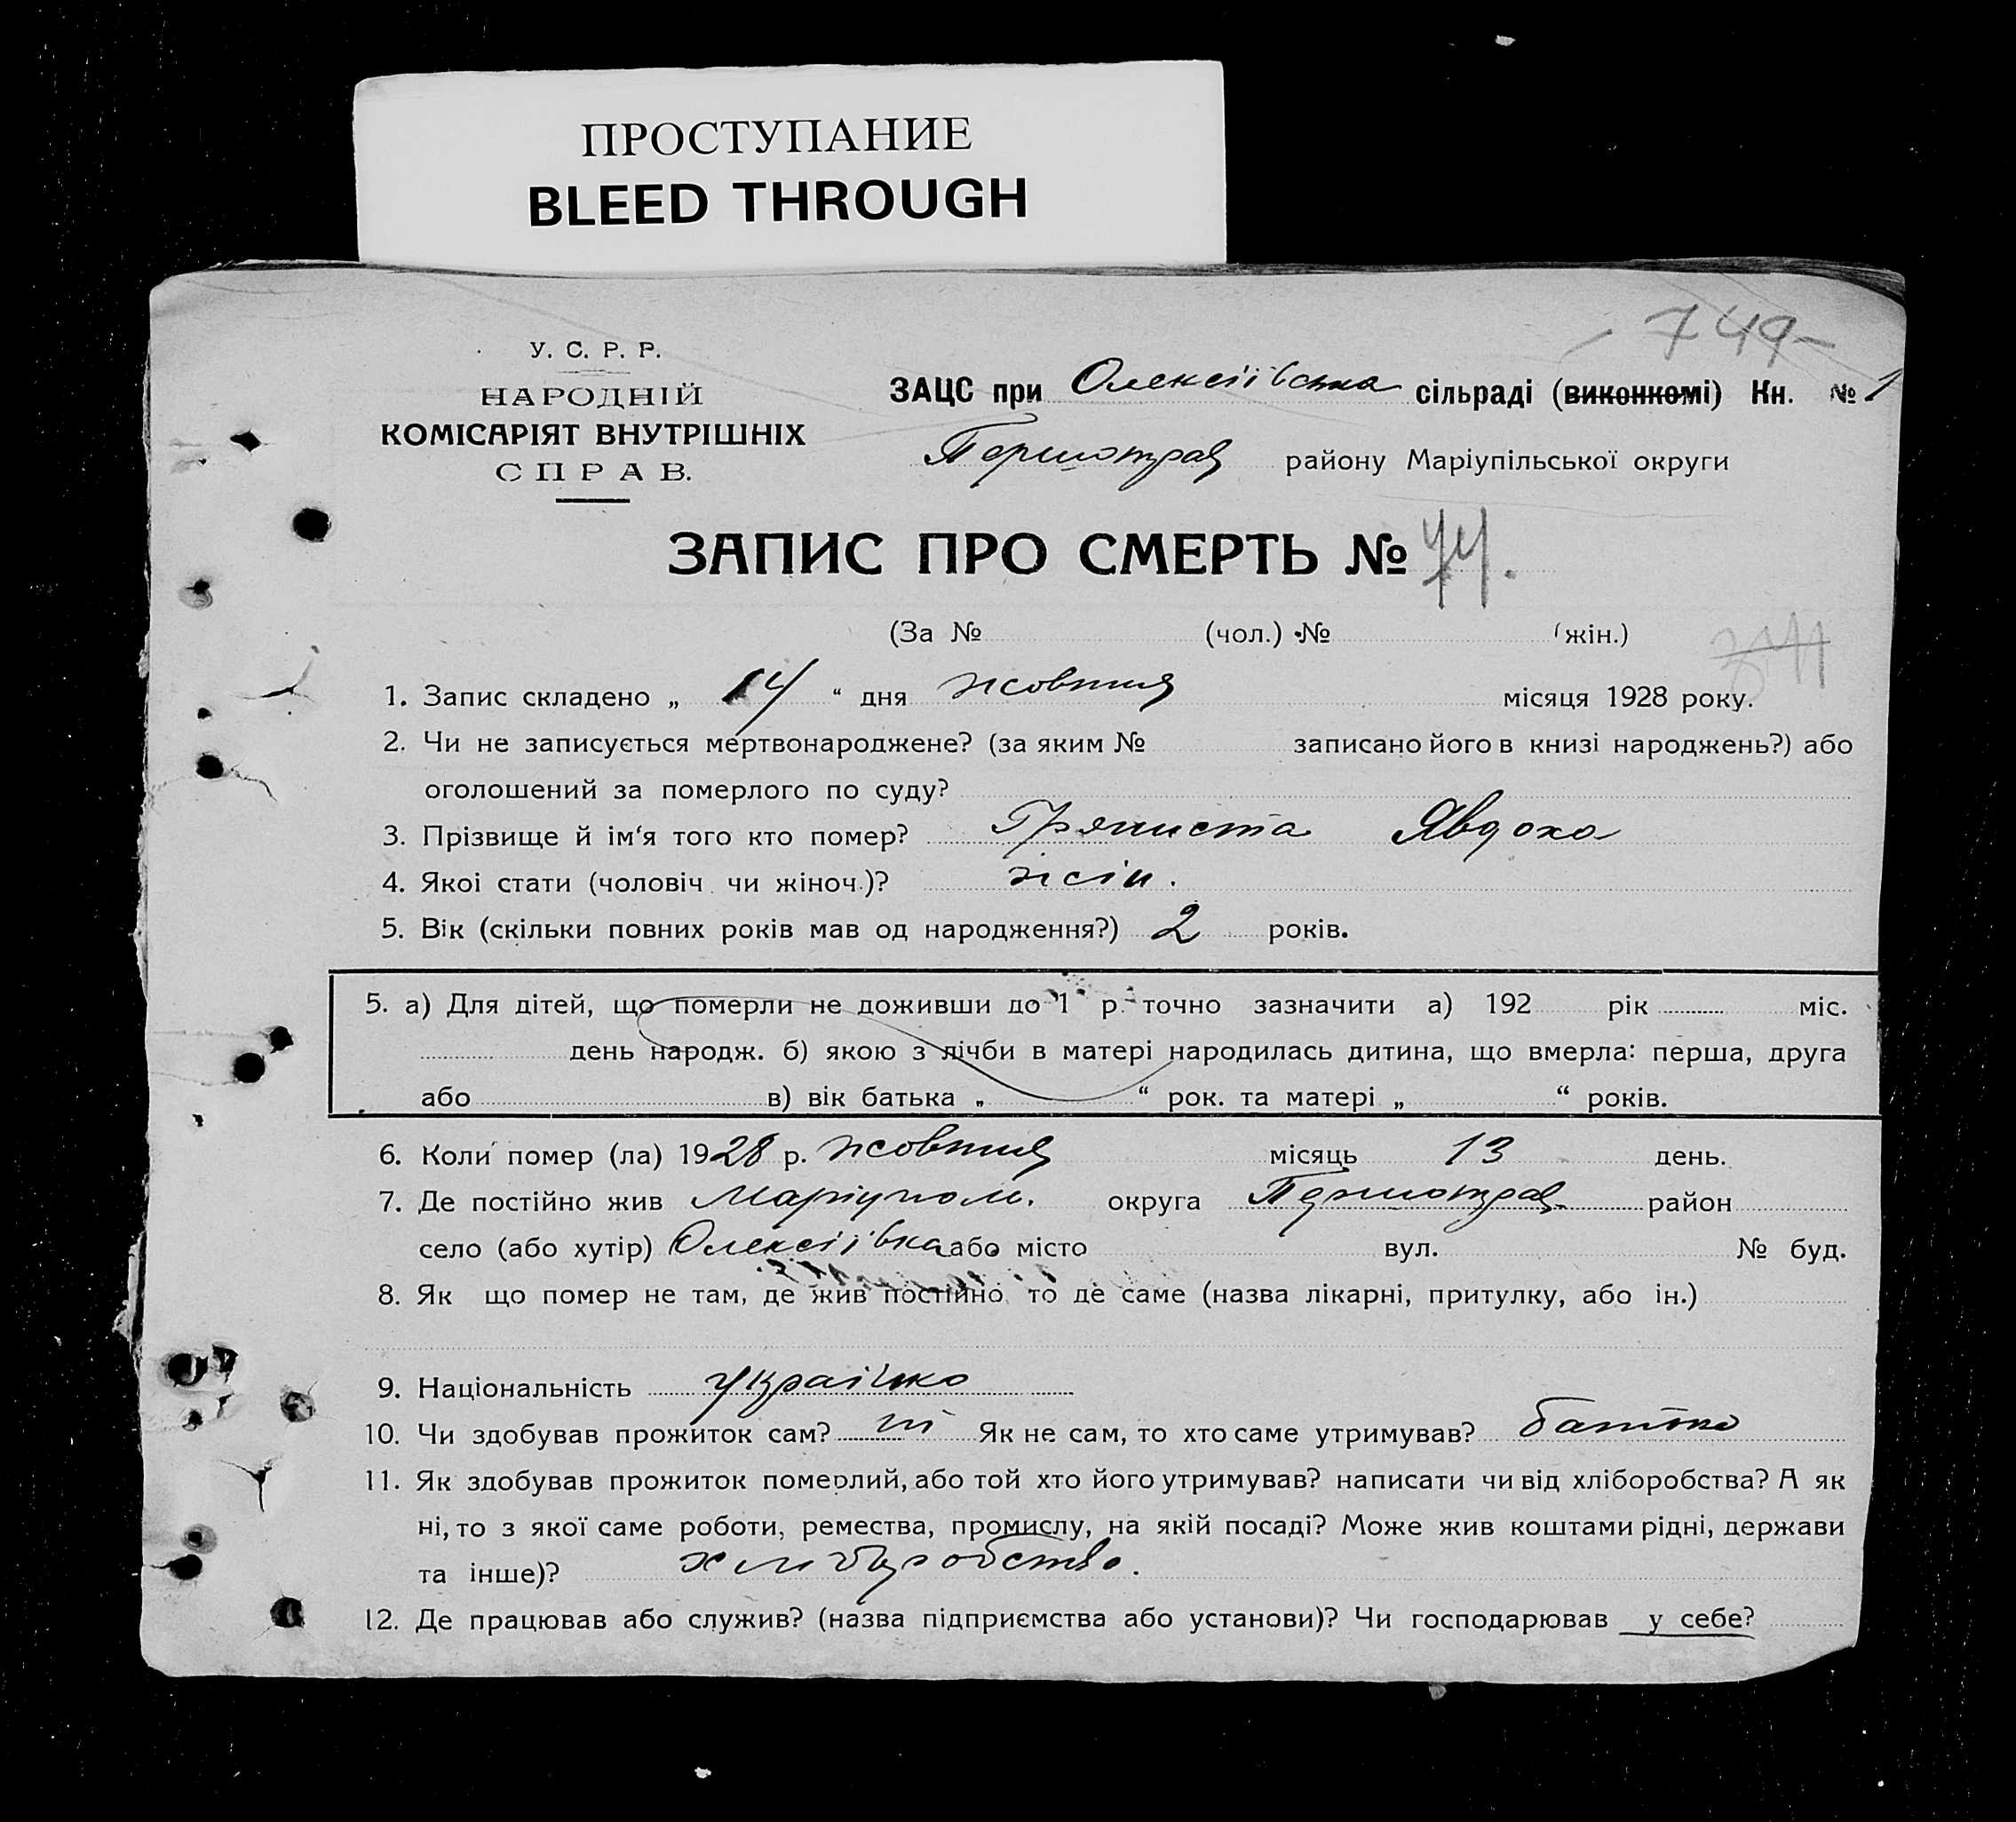 ПРОСТУПАНИЕ
BLEED THROUGH
- 749 -
У. С. Р. Р.
НАРОДНІЙ
КОМІСАРІЯТ ВНУТРІШНІХ
СПРАВ.
ЗАЦС при Олексіївська сільраді (виконкомі) Кн. № 1
Першотрав району Маріупільської округи
ЗАПИС ПРО СМЕРТЬ № 74.
(За № (чол.) № (жін.)
1. Запис складено „ 14 “ дня жовтня місяця 1928 року.
2. Чи не записується мертвонароджене? (за яким № записано його в книзі народжень?) або
оголошений за померлого по суду?
3. Прізвище й ім‘я того кто помер? Явдоха
4. Якоі стати (чоловіч. чи жіноч.)? жін.
5. Вік (скільки повних років мав од народження?) 2 років.
5. а) Для дітей, що померли не доживши до 1 р. точно зазначити а) 192 рік міс.
день народж. б) якою з лічби в матері народилась дитина, що вмерла: перша, друга
або в) вік батька „ “ рок. та матері „ “ років.
6. Коли помер (ла) 1928 р. жовтня місяць 13 день.
7. Де постійно жив Маріупол. округа Першотрав. район
село (або хутір) Олексіївка або місто вул. № буд.
8. Як що помер не там, де жив постійно то де саме (назва лікарні, притулку, або ін.)
9. Національність українка
10. Чи здобував прожиток сам? ні Як не сам, то хто саме утримував? батько
11. Як здобував прожиток померлий, або той хто його утримував? написати чи від хліборобства? А як
ні, то з якої саме роботи, ремества, промислу, на якій посаді? Може жив коштами рідні, держави
та інше)? хліборобство.
12. Де працював або служив? (назва підприємства або установи)? Чи господарював у себе?